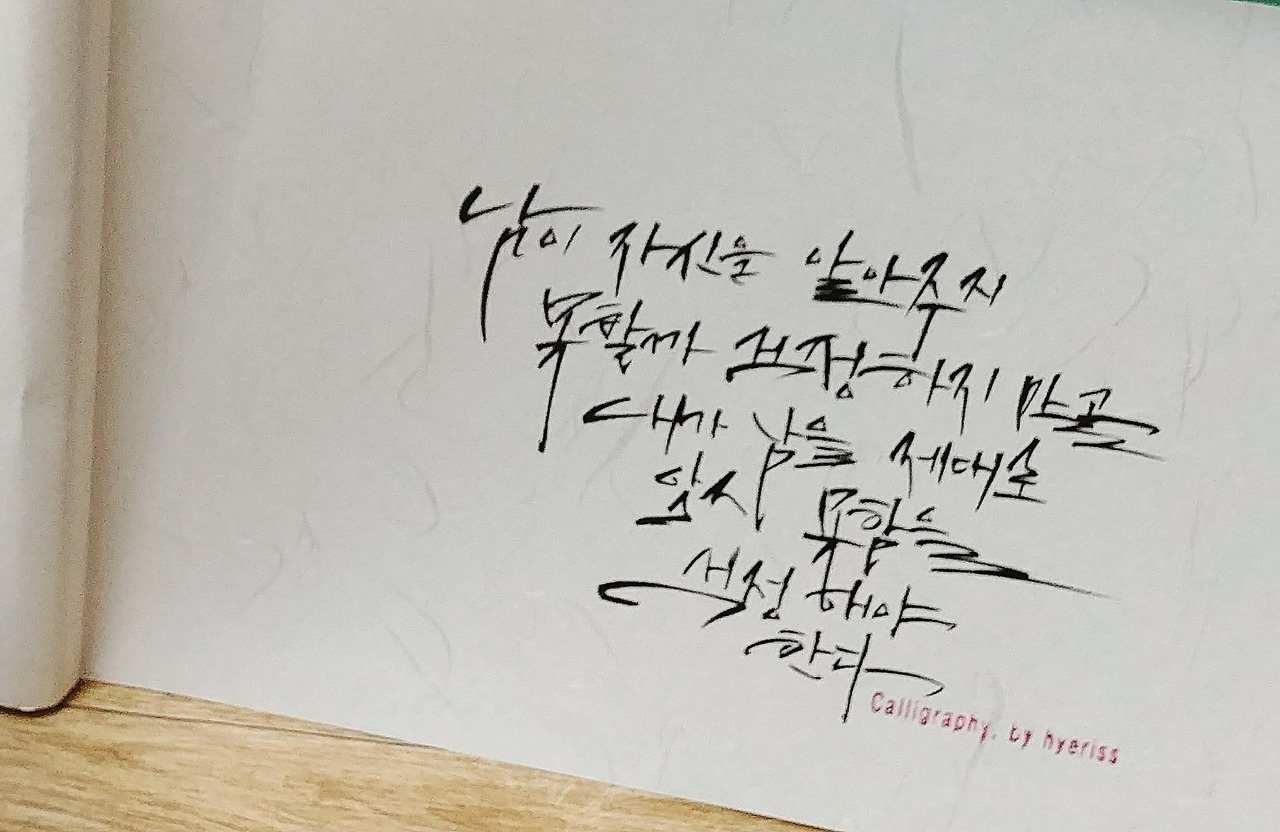 남이 자신을 알아주지
못할까 걱정하지 말고
내가 남을 제대로
알지 못함을
걱정 해야
한다
Calligraphy. by hyeriss